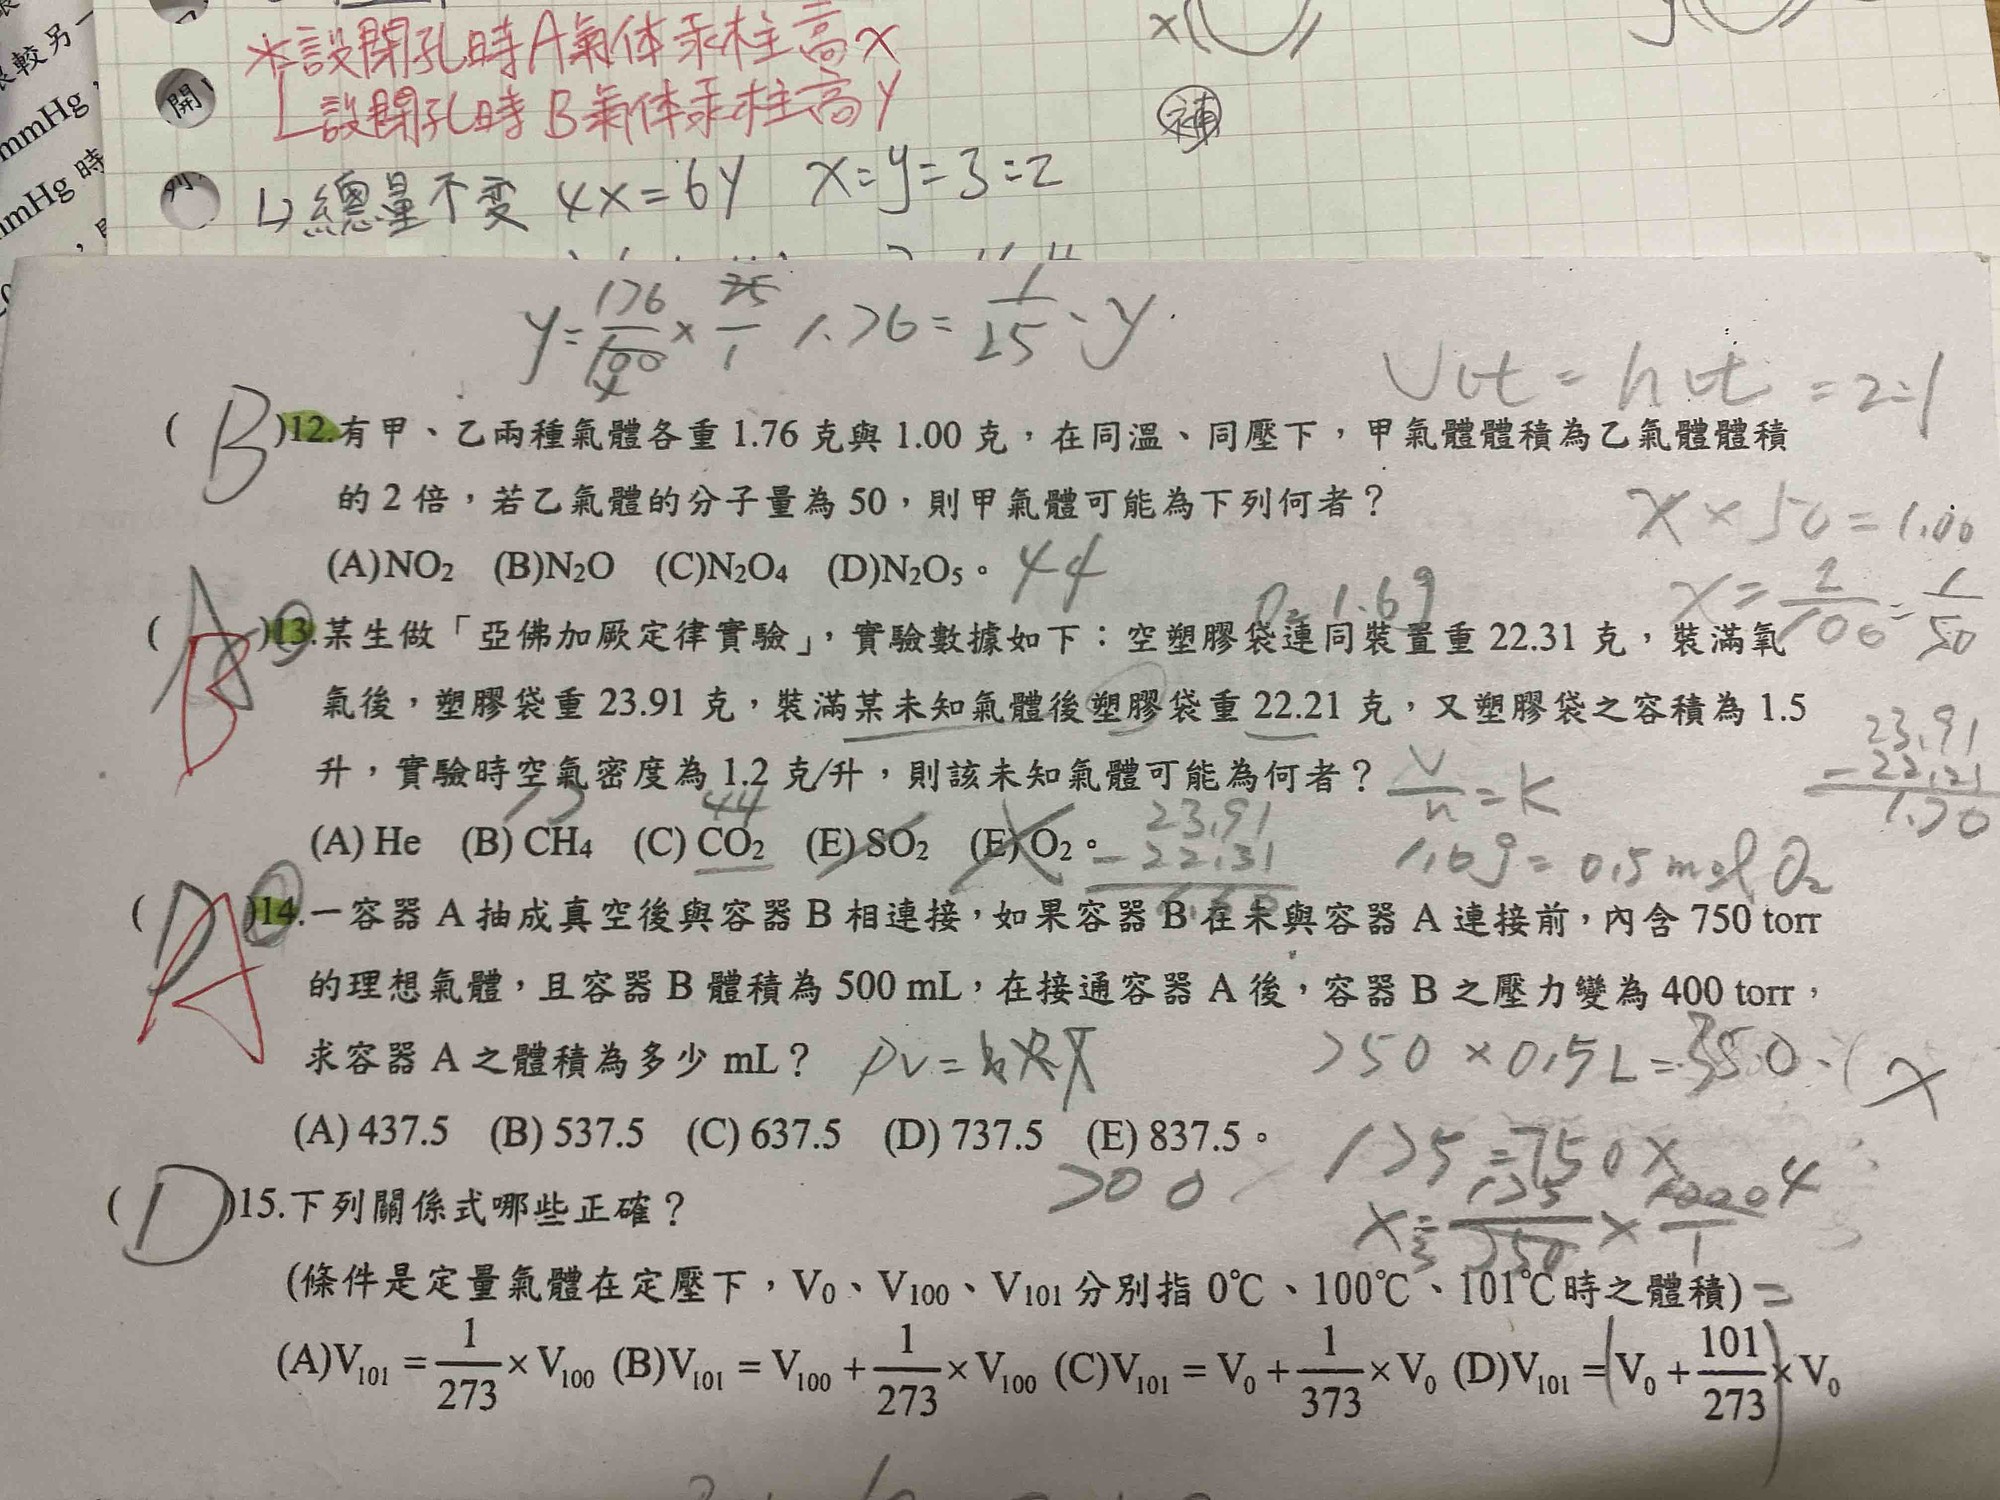 限較另一
mmHg，
mmHg 時
*設開孔時A氣体汞柱高x
開
設開孔時B氣体汞柱高y
列
↳總量不变 4x=6y x:y=3:2
補
y=176/100×25/1 1.76=1/25·y
V比=n比=2:1
(B)12.有甲、乙兩種氣體各重 1.76 克與 1.00 克，在同溫、同壓下，甲氣體體積為乙氣體體積
的 2 倍，若乙氣體的分子量為 50，則甲氣體可能為下列何者？
x×50=1.00
(A)NO₂ (B)N₂O (C)N₂O₄ (D)N₂O₅。 44
x=2/100=1/50
O₂ 1.6g
(A B)13.某生做「亞佛加厥定律實驗」，實驗數據如下：空塑膠袋連同裝置重 22.31 克，裝滿氧
氣後，塑膠袋重 23.91 克，裝滿某未知氣體後塑膠袋重 22.21 克，又塑膠袋之容積為 1.5
23.91
-22.21
1.70
升，實驗時空氣密度為 1.2 克/升，則該未知氣體可能為何者？ V/n=K
44
(A) He (B) CH₄ (C) CO₂ (E) SO₂ (E) O₂。
23.91
-22.31
1.60
1.6g=0.5mol O₂
(D A)14.一容器 A 抽成真空後與容器 B 相連接，如果容器 B 在未與容器 A 連接前，內含 750 torr
的理想氣體，且容器 B 體積為 500 mL，在接通容器 A 後，容器 B 之壓力變為 400 torr，
求容器 A 之體積為多少 mL？ PV=nRT
750×0.5L=350·x
(A) 437.5 (B) 537.5 (C) 637.5 (D) 737.5 (E) 837.5。
700
175=750x
(D)15.下列關係式哪些正確？
(條件是定量氣體在定壓下，V₀、V₁₀₀、V₁₀₁ 分別指 0℃、100℃、101℃時之體積)
(A)V₁₀₁ = 1/273 × V₁₀₀ (B)V₁₀₁ = V₁₀₀ + 1/273 × V₁₀₀ (C)V₁₀₁ = V₀ + 1/373 × V₀ (D)V₁₀₁ = (V₀ + 101/273) × V₀